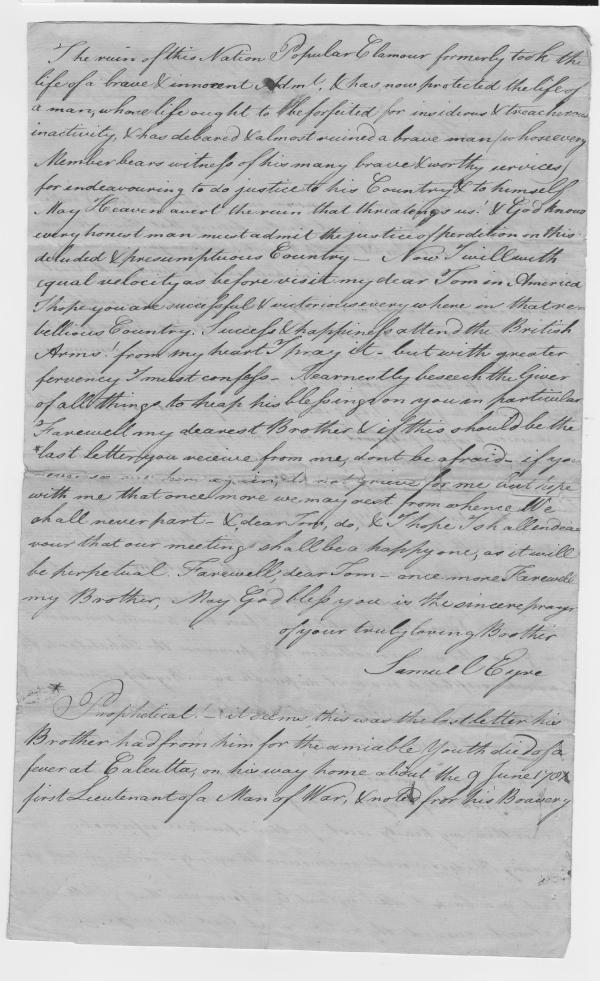 The ruin of this Nation Popular Clamour formerly took the
life of a brave & innocent Adml. & has now protected the life of
a man, whose life ought to be forfeited for insidious & treacherous
inactivity, & has debared & almost ruined a brave man (whose every
Member bears witness of his many brave & worthy services)
for endeavouring to do justice to his Country & to himself
May Heaven avert the ruin that threatengs us! & God knows
every honest man must admit the justice of perdition on this
deluded & presumptuous Country — Now I will with
equal velocity as before visit my dear Tom in America
I hope you are successful & victorious every where in that re
bellious Country. Success & happiness attend the British
Arms! from my heart I pray it - but with greater
fervency I must confess - I earnestly beseech the Giver
of all things to heap his blessings on you in particular
Farewell my dearest Brother & if this should be the
*last letter you receive from me, dont be afraid - if you
again, do not grieve for me but hope
with me that once more we may rest from whence We
shall never part - & dear Tom, do, & I hope I shall endea
vour that our meeting shall be a happy one, as it will
be perpetual. Farewell, dear Tom - once more Farewell
my Brother, May God bless you is the sincere prayer
of your truly loving Brother
Samuel Eyre
* Prophetical! - it seems this was the last letter his
Brother had from him for the amiable Youth died of a
fever at Calcutta, on his way home about the 9 June 178
first Lieutenant of a Man of War, & noted for his Bravery